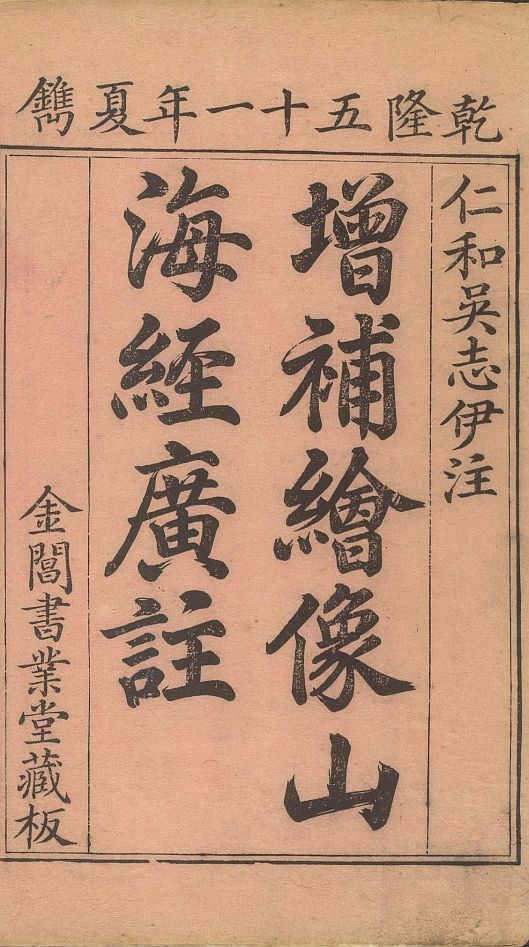 乾隆五十一年夏鐫
仁和吳志伊注
增補繪像山
海經廣註
金閶書業堂藏板